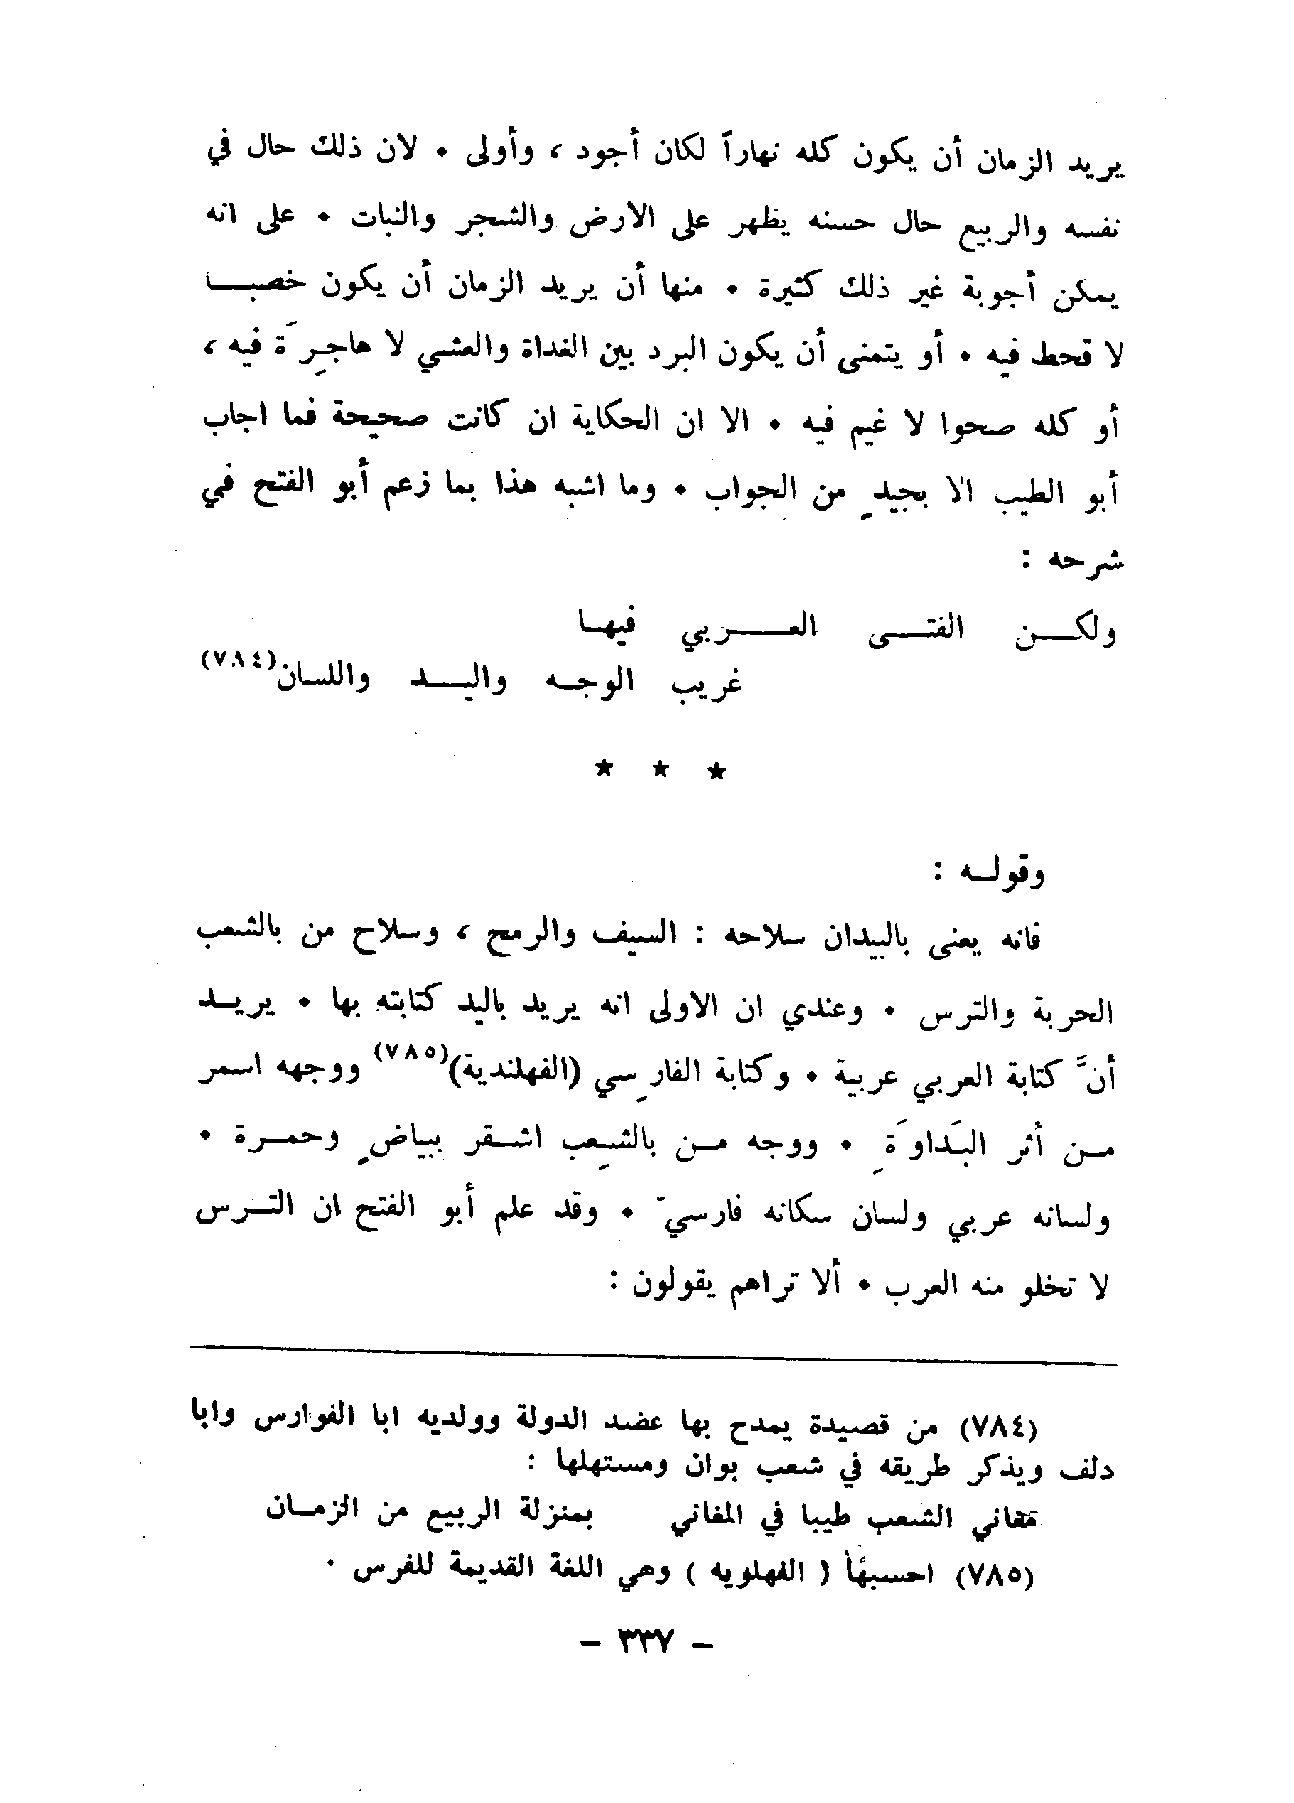 يريد الزمان أن يكون كله نهاراً لكان أجود ، وأولى • لان ذلك حال في
نفسه والربيع حال حسنه يظهر على الارض والشجر والنبات • على انه
يمكن أجوبة غير ذلك كثيرة • منها أن يريد الزمان أن يكون خصبــا
لا قحط فيه • أو يتمنى أن يكون البرد بين الغداة والعشي لا هاجِرَة فيه ،
أو كله صحوا لا غيم فيه • الا ان الحكاية ان كانت صحيحة فما اجاب
أبو الطيب الا بجيدٍ من الجواب • وما اشبه هذا بما زعم أبو الفتح في
شرحه :
ولكــن الفتــى العــــربي فيهــا
غريب الوجــه واليــد واللسان(٧٨٤)
* * *
وقولــه :
فانه يعنى بالبيدان سلاحه : السيف والرمح ، وسلاح من بالشعب
الحربة والترس • وعندي ان الاولى انه يريد باليد كتابته بها • يريــد
أنَّ كتابة العربي عربية • وكتابة الفارِسي (الفهلندية)(٧٨٥) ووجهه اسمر
مــن أثر البَداوَةِ • ووجه مــن بالشِعب اشــقر ببياضٍ وحمــرة •
ولسانه عربي ولسان سكانه فارسيّ • وقد علم أبو الفتح ان التــرس
لا تخلو منه العرب • ألا تراهم يقولون :
(٧٨٤) من قصيدة يمدح بها عضد الدولة وولديه ابا الفوارس وابا
دلف ويذكر طريقه في شعب بوان ومستهلها :
مغاني الشعب طيبا في المغاني بمنزلة الربيع من الزمــان
(٧٨٥) احسبهأ ( الفهلويه ) وهي اللغة القديمة للفرس •
- ٣٣٧ -